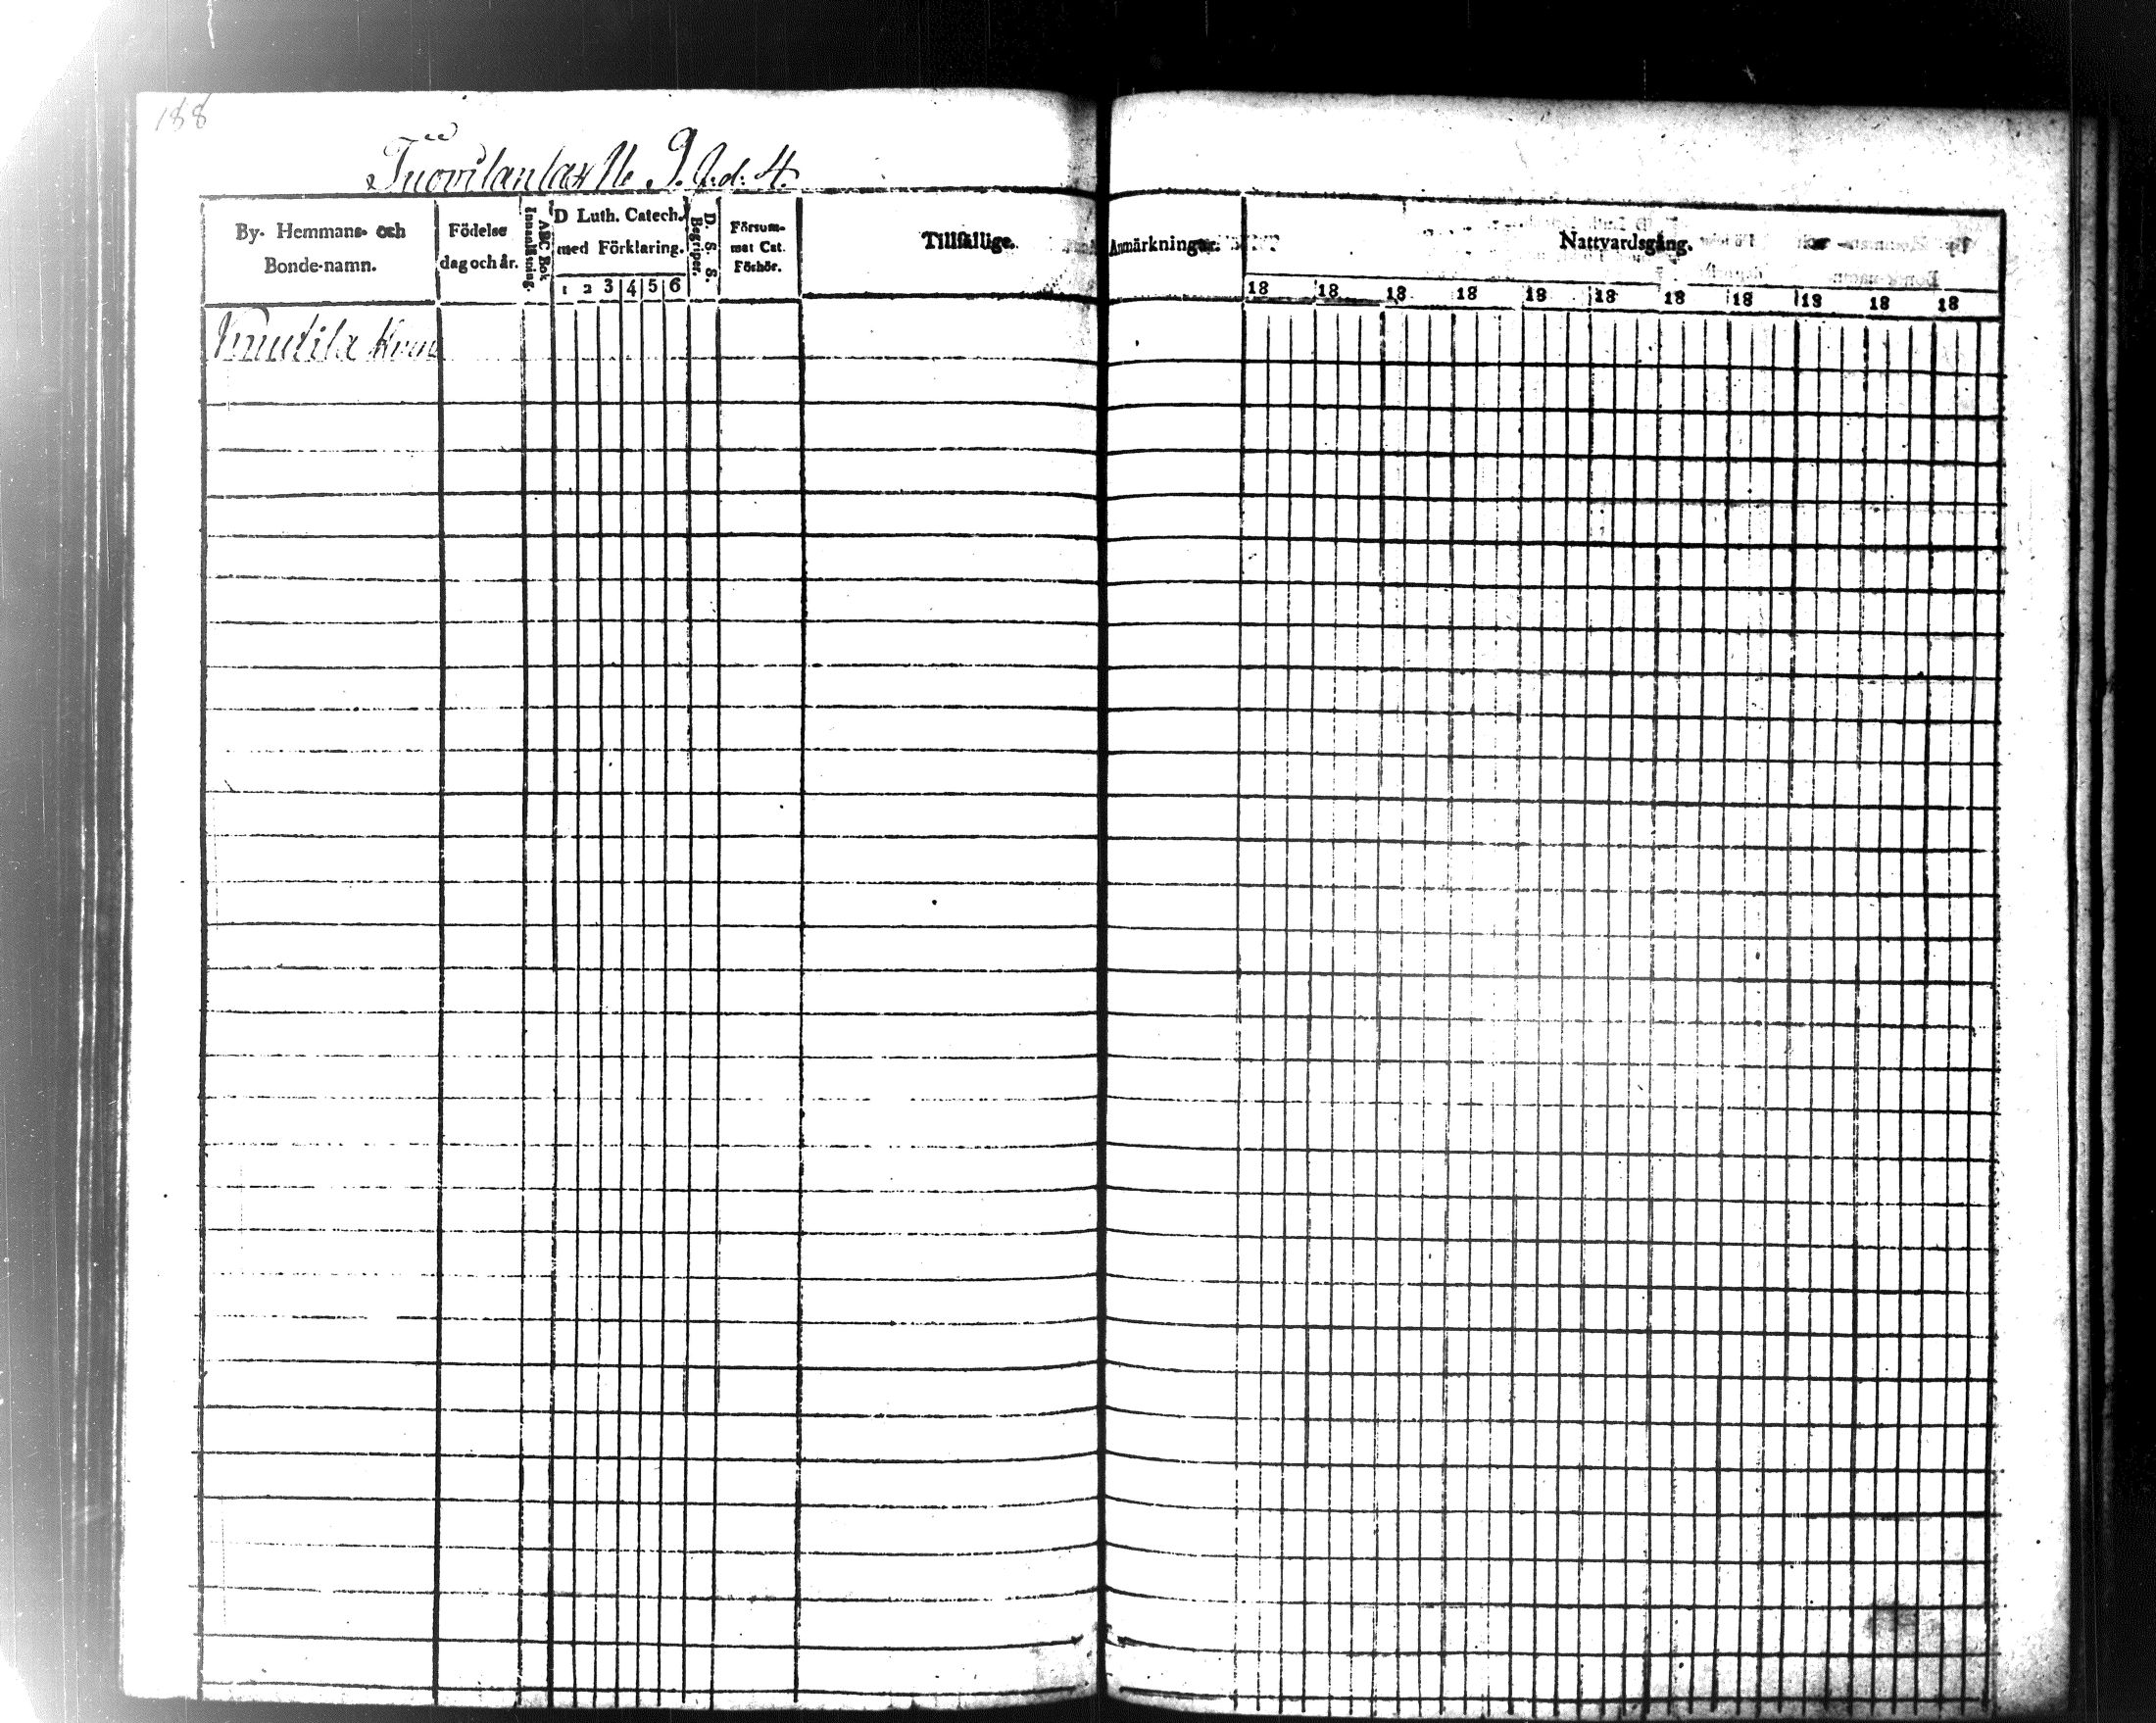 188
Tuovilanlax No 9. J:d: 4.
By- Hemmans- och Bonde-namn.
Födelse dag och år.
Innanläsning.
ABC Bok
D Luth. Catech. med Förklaring.
1 2 3 4 5 6
D. S. S. Begriper.
Försummat Cat. Förhör.
Tillfällige Anmärkningar.
Nattvardsgång.
18 18 18 18 18 18 18 18 18 18 18
Knuutila